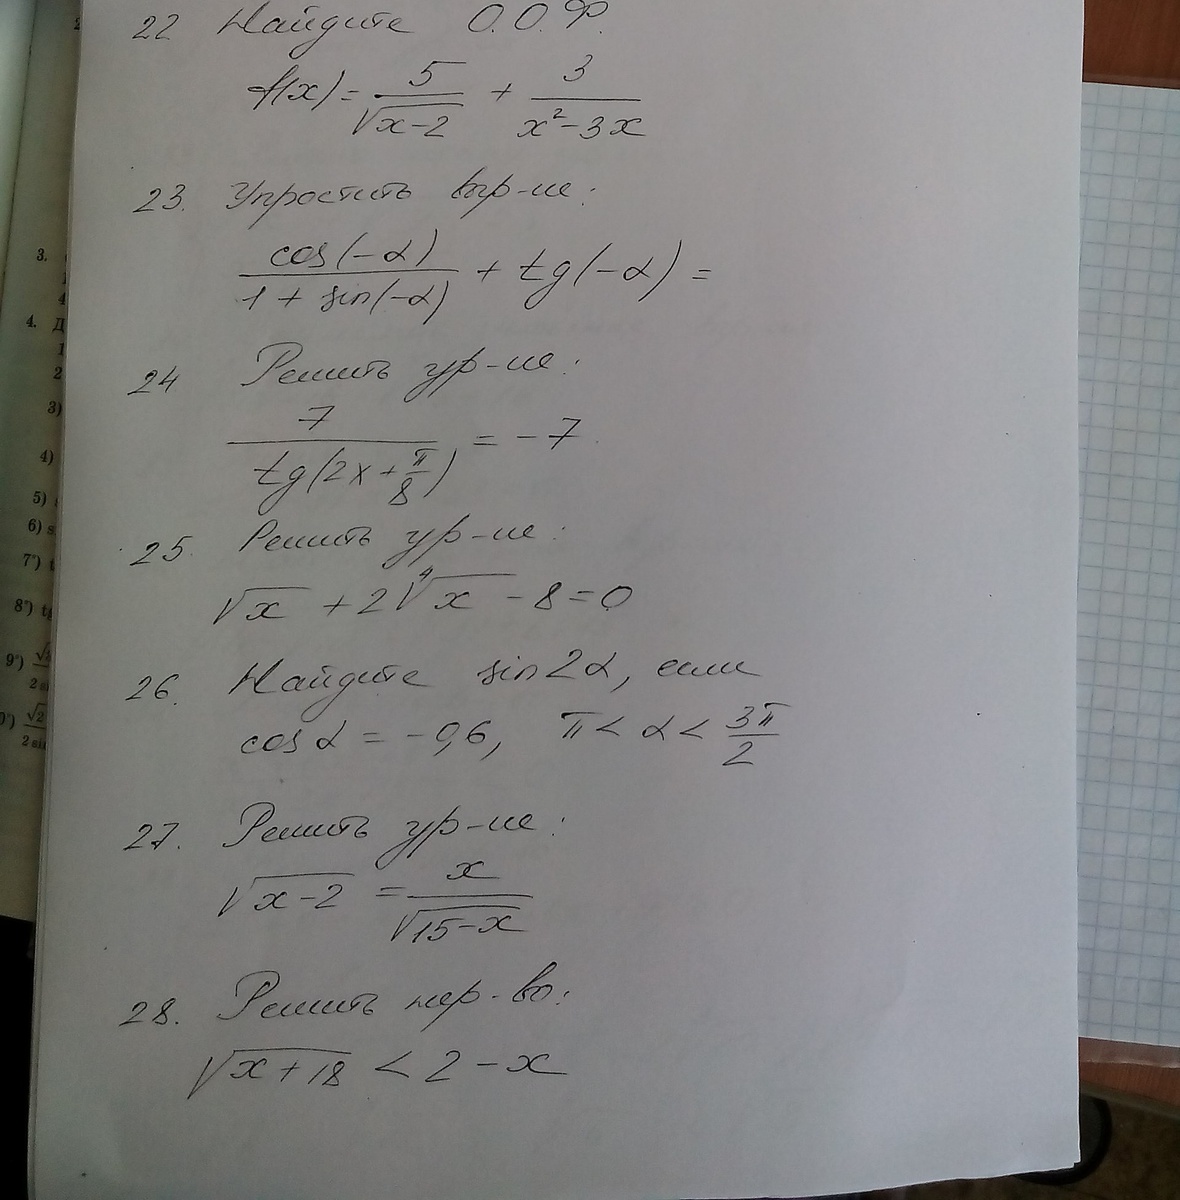 22 Найдите О.О.Ф.
f(x) = 5/√(x-2) + 3/(x²-3x)
23. Упростить выр-ие:
cos(-α)/(1 + sin(-α)) + tg(-α) =
24 Решить ур-ие:
7/tg(2x + π/8) = -7
25. Решить ур-ие:
√x + 2⁴√x - 8 = 0
26. Найдите sin2α, если
cos α = -0,6, π < α < 3π/2
27. Решить ур-ие:
√(x-2) = x/√(15-x)
28. Решить нер-во:
√(x+18) < 2-x
3.
1
4
4. Д
1
2
3)
4)
5)
6) s
7°)
8°) t
9°)
2 si
√2
2 sin